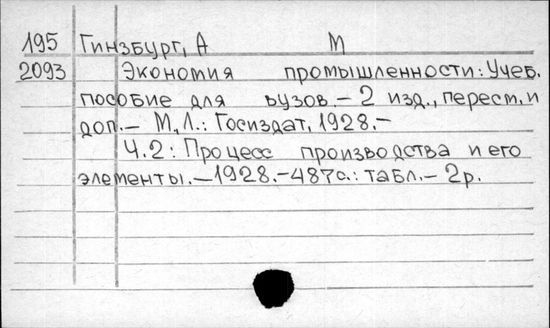 195 Гинзбург, А М
2093 Экономия промышленности: Учеб.
пособие для вузов.- 2 изд., перест. и
доп.- М., Л.: Госиздат, 1928.-
Ч.2: Процесс производства и его
элементы.-1928.-487с.: табл.- 2р.